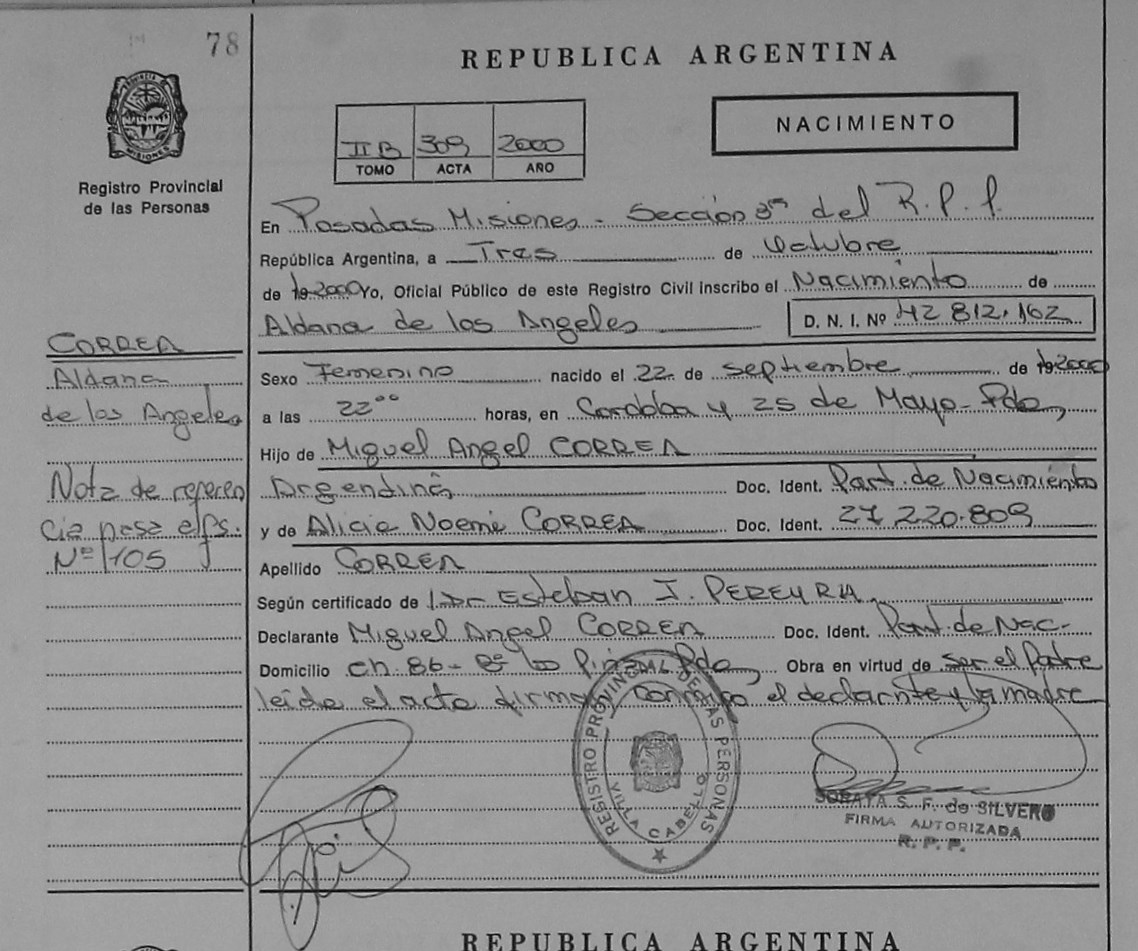 78
REPUBLICA ARGENTINA
PROVINCIA DE MISIONES
Registro Provincial
de las Personas
II B 309 2000
TOMO ACTA AÑO
NACIMIENTO
En Posadas Misiones - Sección 3ª del R. P. P.
República Argentina, a Tres de Octubre
de 19 2000 Yo, Oficial Público de este Registro Civil inscribo el Nacimiento de
Aldana de los Angeles D. N. I. Nº 42 812.162
CORREA
Aldana
de los Angeles
Nota de referen
cia pasa
Nº 105
Sexo Femenino nacido el 22 de septiembre de 19 2000
a las 22ºº horas, en Cordoba y 25 de Mayo - Pdas
Hijo de Miguel Angel CORREA
Argentina Doc. Ident. Part. de Nacimiento
y de Alicia Noemi CORREA Doc. Ident. 27 220.809
Apellido CORREA
Según certificado de Dr Esteban J. PEREYRA
Declarante Miguel Angel CORREA Doc. Ident. Part. de Nac.
Domicilio Ch. 86 - Pdas Obra en virtud de ser el Padre
leida el acta firma conmigo el declarante y la madre
REGISTRO PROVINCIAL DE LAS PERSONAS
VILLA CABELLO
SORAYA S. F. de SILVERO
FIRMA AUTORIZADA
R. P. P.
REPUBLICA ARGENTINA